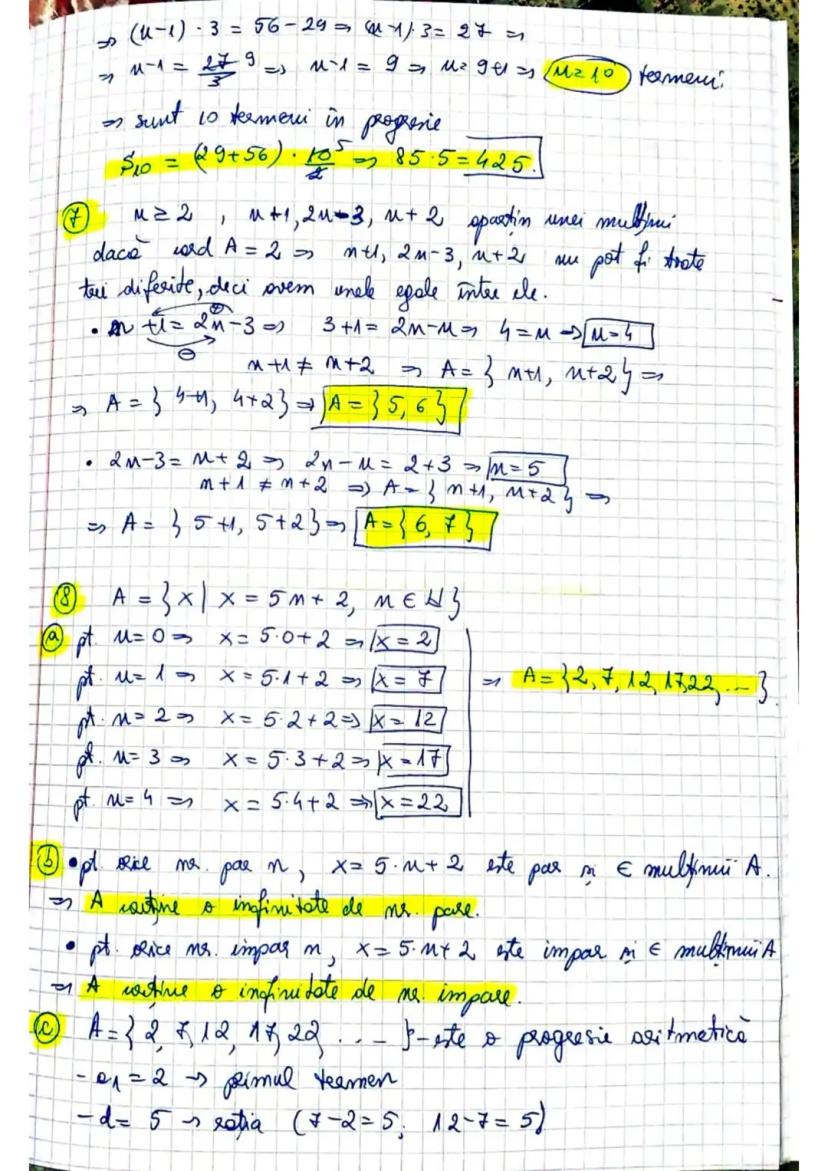 ⇒ (n-1)·3 = 56-29 ⇒ (n-1)·3 = 27 ⇒
⇒ n-1 = 27/3 9 ⇒ n-1 = 9 ⇒ n = 9+1 ⇒ n = 10 termeni.
⇒ sunt 10 termeni în progresie
S10 = (29+56)·10/2 5 ⇒ 85·5 = 425.
7 n ≥ 2, n+1, 2n-3, n+2 aparțin unei mulțimi
dacă card A = 2 ⇒ n+1, 2n-3, n+2 nu pot fi toate
trei diferite, deci avem unele egale între ele.
• n+1 = 2n-3 ⇒ 3+1 = 2n-n ⇒ 4 = n ⇒ n = 4
n+1 ≠ n+2 ⇒ A = { n+1, n+2 } ⇒
⇒ A = { 4+1, 4+2 } ⇒ A = { 5, 6 }
• 2n-3 = n+2 ⇒ 2n-n = 2+3 ⇒ n = 5
n+1 ≠ n+2 ⇒ A = { n+1, n+2 } ⇒
⇒ A = { 5+1, 5+2 } ⇒ A = { 6, 7 }
8 A = { x | x = 5n+2, n ∈ N }
a pt. n = 0 ⇒ x = 5·0+2 ⇒ x = 2
pt. n = 1 ⇒ x = 5·1+2 ⇒ x = 7 ⇒ A = { 2, 7, 12, 17, 22, ... }
pt. n = 2 ⇒ x = 5·2+2 ⇒ x = 12
pt. n = 3 ⇒ x = 5·3+2 ⇒ x = 17
pt. n = 4 ⇒ x = 5·4+2 ⇒ x = 22
b • pt. orice nr. par n, x = 5·n+2 este par și ∈ mulțimii A.
⇒ A conține o infinitate de nr. pare.
• pt. orice nr. impar n, x = 5·n+2 este impar și ∈ mulțimii A
⇒ A conține o infinitate de nr. impare.
c A = { 2, 7, 12, 17, 22 ... } - este o progresie aritmetică
- a1 = 2 → primul termen
- d = 5 → rația (7-2 = 5; 12-7 = 5)